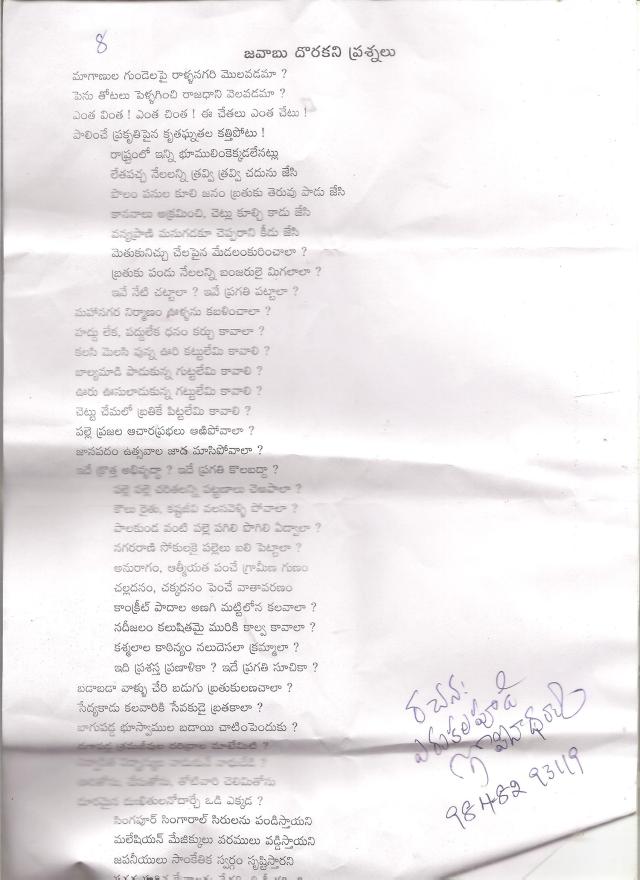 8
జవాబు దొరకని ప్రశ్నలు
మాగాణుల గుండెలపై రాళ్ళనగరి మొలవడమా ?
పెను తోటలు పెళ్ళగించి రాజధాని వెలవడమా ?
ఎంత వింత ! ఎంత చింత ! ఈ చేతలు ఎంత చేటు !
పాలించే ప్రకృతిపైన కృతఘ్నతల కత్తిపోటు !
రాష్ట్రంలో ఇన్ని భూములింకెక్కడలేనట్లు
లేతపచ్చ నేలలన్ని త్రవ్వి త్రవ్వి చదును జేసి
పొలం పనుల కూలి జనం బ్రతుకు తెరువు పాడు జేసి
కానవాలు అక్రమించి, చెట్లు కూల్చి కాడు జేసి
వన్యప్రాణి మనుగడకూ చెప్పరాని కీడు జేసి
మెతుకునిచ్చు చేలపైన మేడలంకురించాలా ?
బ్రతుకు పండు నేలలన్ని బంజరులై మిగలాలా ?
ఇవే నేటి చట్టాలా ? ఇవే ప్రగతి పట్టాలా ?
మహానగర నిర్మాణం ఊళ్ళను కబళించాలా ?
హద్దు లేక, పద్దులేక ధనం కర్చు కావాలా ?
కలసి మెలసి వున్న ఊరి కట్టులేమి కావాలి ?
బాల్యమాడి పాడుకున్న గుట్టలేమి కావాలి ?
ఊరు ఊసులాడుకున్న గట్టులేమి కావాలి ?
చెట్టు చేమలో బ్రతికే పిట్టలేమి కావాలి ?
పల్లె ప్రజల ఆచారప్రభలు ఆణిపోవాలా ?
జానపదం ఉత్సవాల జాడ మాసిపోవాలా ?
ఇదే క్రొత్త అభివృద్ధా ? ఇదే ప్రగతి కొలబద్దా ?
పల్లె పల్లె చరితలన్ని పట్టణాలు చెణపాలా ?
కౌలు రైతు, కష్టజీవి వలసవెళ్ళి పోవాలా ?
పాలకుండ వంటి పల్లె పగిలి పొగిలి ఏడ్వాలా ?
నగరరాణి సోకులకై పల్లెలు బలి పెట్టాలా ?
అనురాగం, ఆత్మీయత పంచే గ్రామీణ గుణం
చల్లదనం, చక్కదనం పెంచే వాతావరణం
కాంక్రీట్ పాదాల అణగి మట్టిలోన కలవాలా ?
నదీజలం కలుషితమై మురికి కాల్వ కావాలా ?
కశ్మలాల కాఠిన్యం నలుదెసలా క్రమ్మాలా ?
ఇది ప్రశస్త ప్రణాళికా ? ఇదే ప్రగతి సూచికా ?
బడాబడా వాళ్ళు చేరి బడుగు బ్రతుకులణచాలా ?
సేద్యకాడు కలవారికి సేవకుడై బ్రతకాలా ?
బాగుపడ్డ భూస్వాముల బడాయి చాటింపెందుకు ?
ఒడి ఎక్కడ ?
సింగపూర్ సింగారాల్ సిరులను పండిస్తాయని
మలేషియన్ మేజిక్కులు వరములు వడ్డిస్తాయని
జపనీయులు సాంకేతిక స్వర్గం సృష్టిస్తారని
రచన:
ఎరుకలపూడి
గోపీనాథరావు
98482 93119